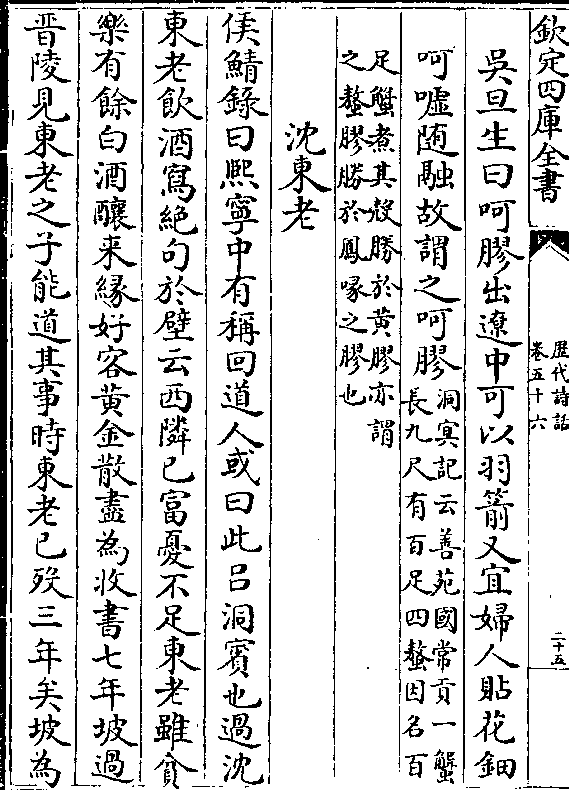 欽定四庫全書
歷代詩話
卷五十六
二十五
吳旦生曰呵膠出遼中可以羽箭又宜婦人貼花鈿
呵噓随融故謂之呵膠
洞冥記云善苑國常貢一蟹
長九尺有百足四螯因名百
足蟹煮其殻勝於黄膠亦謂
之螯膠勝於鳳喙之膠也
沈東老
侯鯖錄曰熙寧中有稱回道人或曰此吕洞賓也過沈
東老飲酒寫絶句於壁云西隣已富憂不足東老雖貧
樂有餘白酒釀来緣好客黄金散盡為收書七年坡過
晋陵見東老之子能道其事時東老已歿三年矣坡為